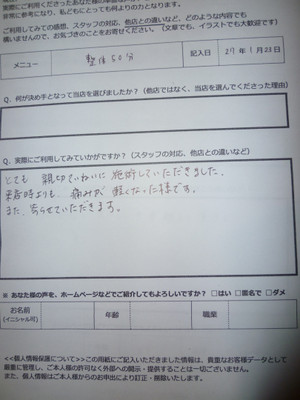 実際にご利用くださったあなた様の
常に参考になり、私どもにとっても何よりの力となります。
本日ご利用してみての感想、スタッフの対応、他店との違いなど、どのような内容でも
構いませんので、お気づきのことをお寄せください。（文章でも、イラストでも大歓迎です）
メニュー 整体50分 記入日 27年1月23日
Q．何が決め手となって当店を選びましたか？（他店ではなく、当店を選んでくださった理由）
Q．実際にご利用してみていかがですか？（スタッフの対応、他店との違いなど）
とても 親切ていねいに 施術していただきました。
来店時よりも、痛みが 軽くなった様です。
また、寄らせていただきます。
※ あなた様の声を、ホームページなどでご紹介してもよろしいですか？ □はい □匿名で □ダメ
お名前 年齢 職業
(イニシャル可)
<<個人情報保護について>>この用紙にご記入いただきました情報は、貴重なお客様データとして
厳重に管理し、ご本人様の許可なく外部への開示・提供することは一切ございません。
また、個人情報はご本人様からのお申出により訂正・削除いたします。